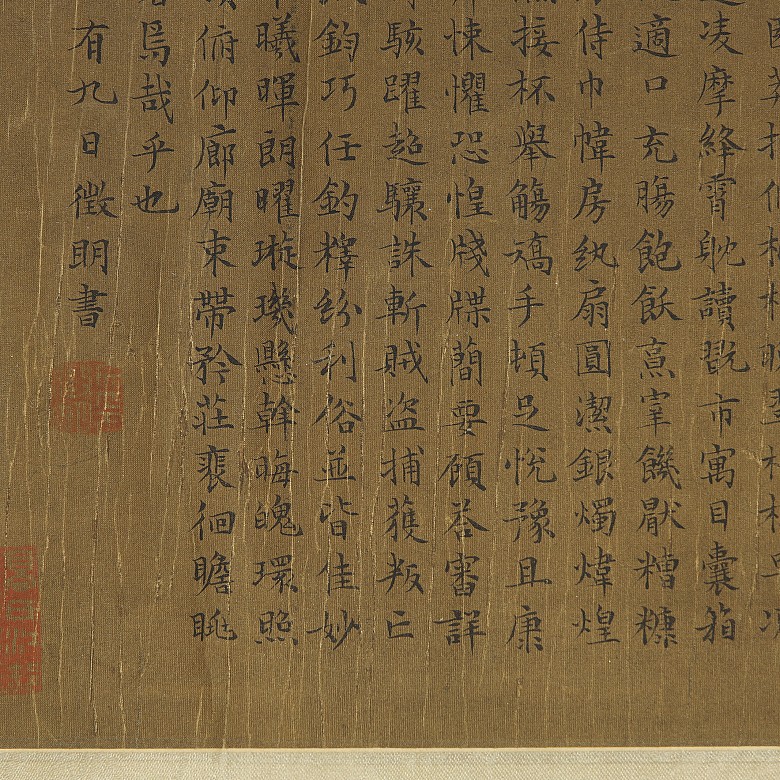 園莽抽條枇杷晚翠梧桐早凋
凌摩絳霄耽讀翫市寓目囊箱
適口充腸飽飫烹宰饑厭糟糠
侍巾幃房紈扇圓潔銀燭煒煌
接杯舉觴矯手頓足悅豫且康
悚懼恐惶牋牒簡要顧荅審詳
駭躍超驤誅斬賊盜捕獲叛亡
鈞巧任釣釋紛利俗並皆佳妙
曦暉朗曜璇璣懸斡晦魄環照
俯仰廊廟束帶矜莊裵徊瞻眺
焉哉乎也
有九日徵明書